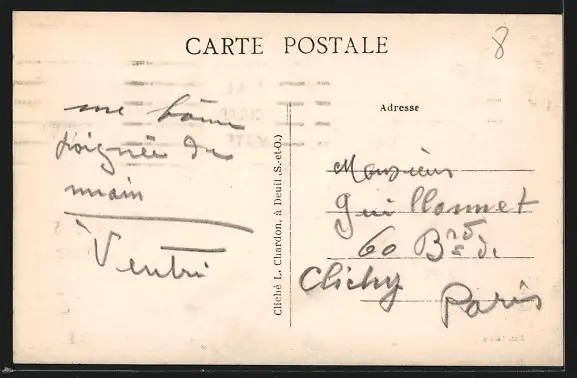 CARTE POSTALE
8
une bonne
poignée de
main
Adresse
Monsieur
Guillonnet
60 Bard de
Clichy
Paris
Cliché L. Chardon, à Deuil (S.-et-O.)